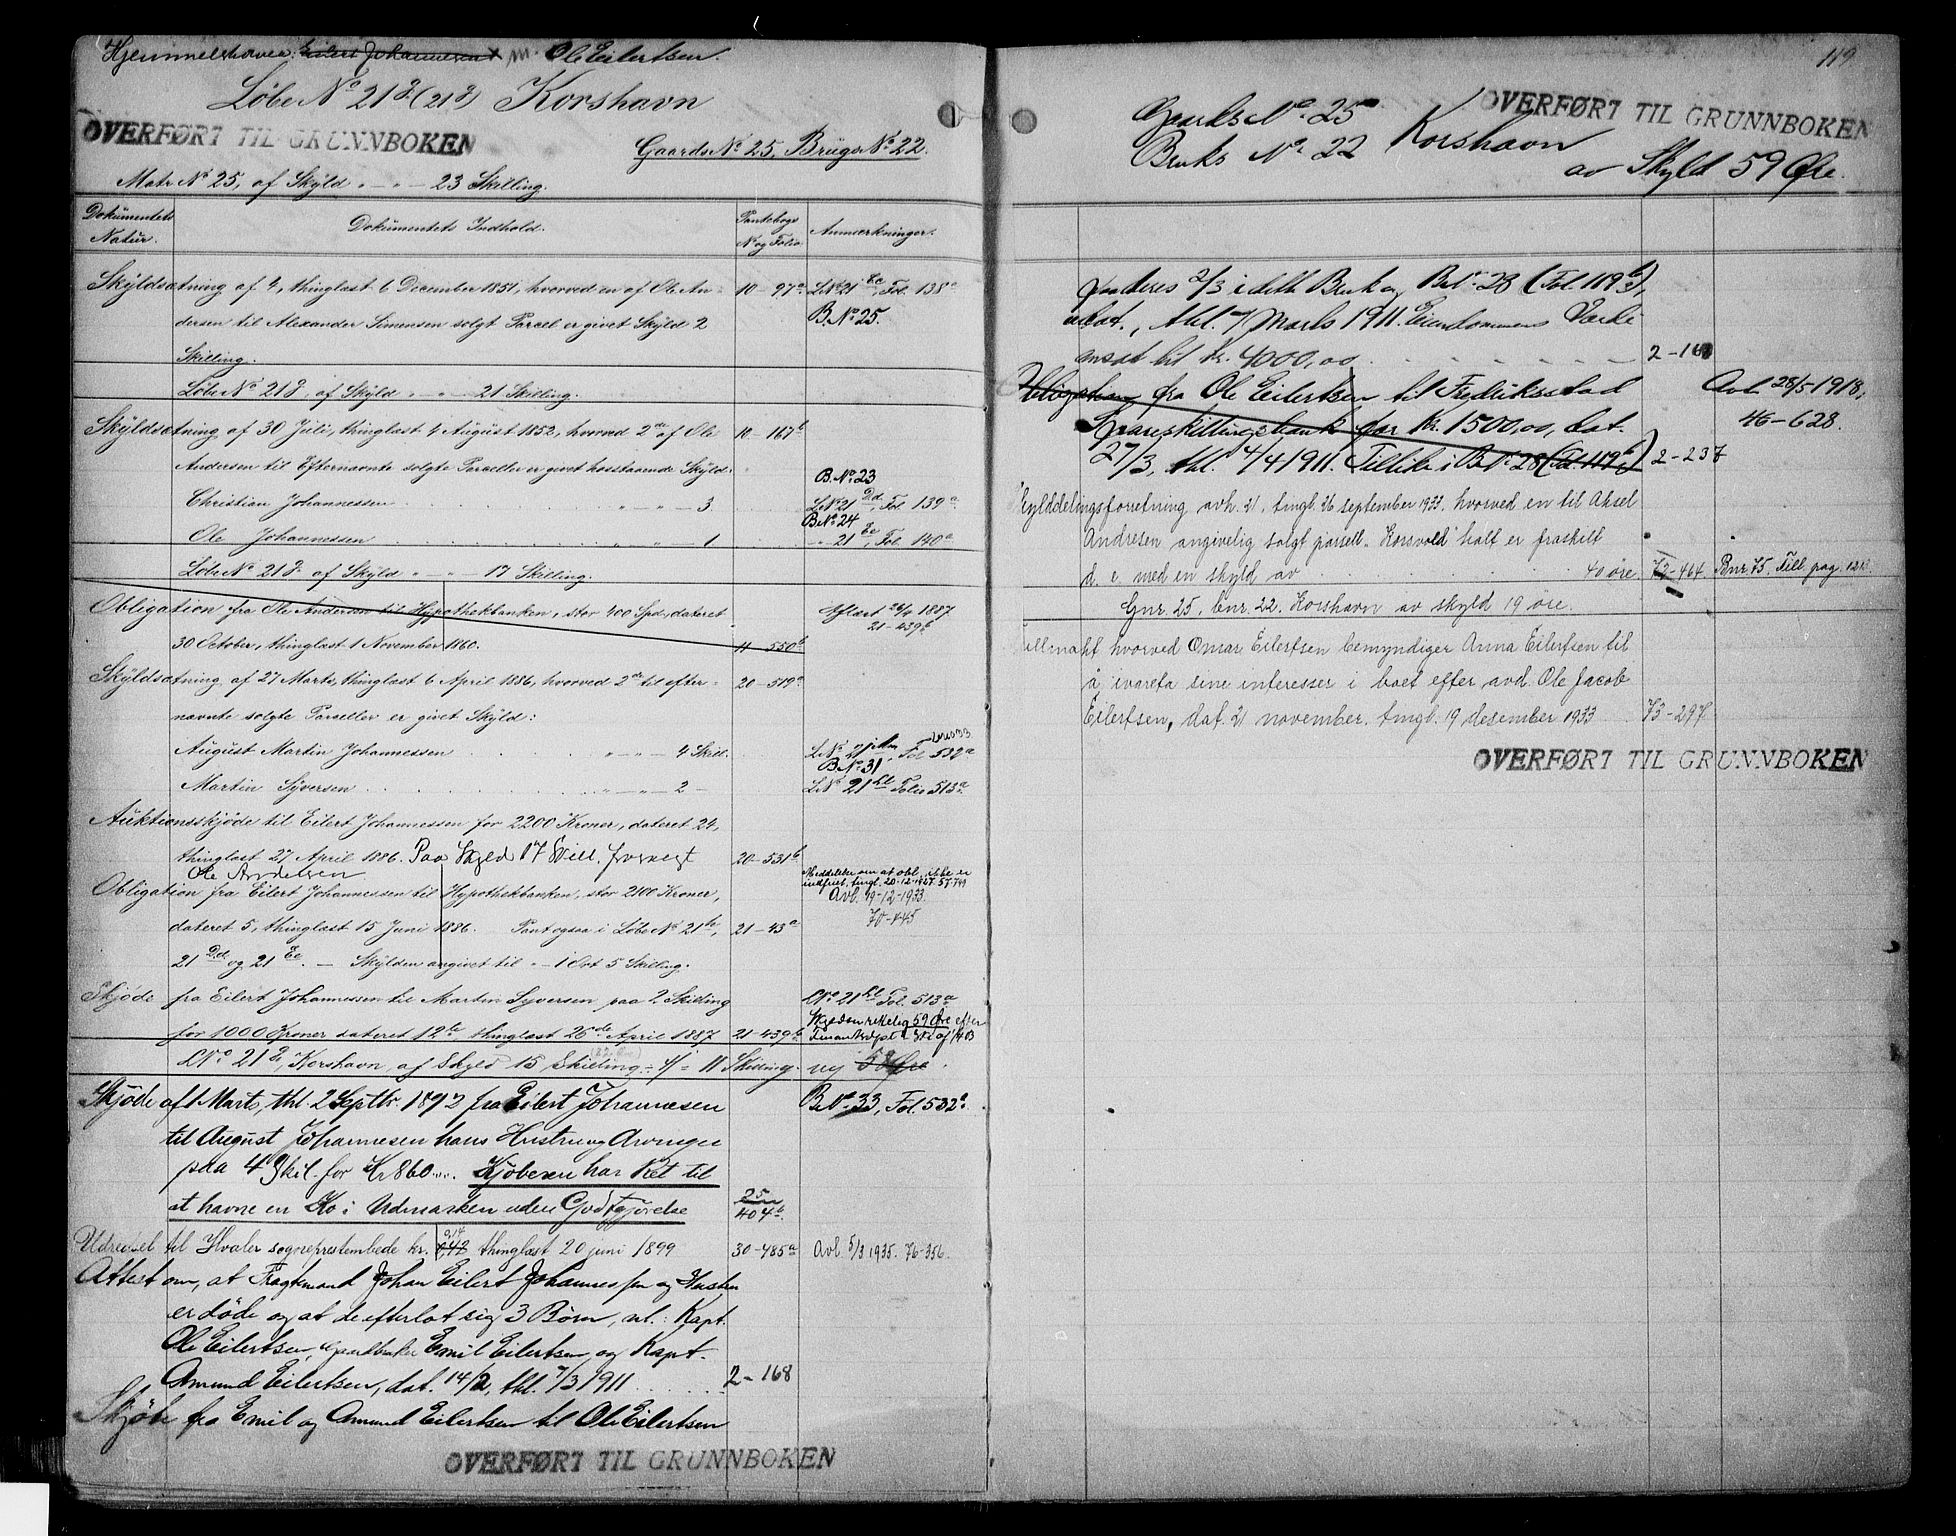 Hjemmelshaver: Eilert Johannesen Ole Eilertsen.
Løbe No 21 g. (21 g) Korshavn
OVERFØRT TIL GRUNNBOKEN
Gaards No 25, Brügs No 22.
Matr No 25, af Skÿld " – " – 23 Skilling.
Dokümentets Natur. Dokümentets Indhold. Pantebogs No og Folio Anmærkninger.
Skÿldsætning af 4, thinglæst 6 December 1851, hvorved en af Ole An= 10 – 97a L No 21 Cc, Fol. 138a
dersen til Alexander Simensen solgt Parcel er givet Skÿld 2 B. No 25.
Skilling.
Løbe No 21 g. af Skÿld " – " – 21 Skilling.
Skÿldsætning af 30 Juli, thinglæst 4 August 1852, hvorved 2de af Ole 10 – 167b
Andersen til Efternævnte solgte Parceller er givet hosstaaende Skÿld: B. No 23
Christian Johannessen " – " – 3 L No 21 Dd, Fol 139a
B No 24
Ole Johannessen " " – 1 " – 21 Ee, Fol. 140a
Løbe No 21 g. af Skÿld " – " – 17 Skilling.
Obligation fra Ole Andersen til Hypothekbanken, stor 400 Spd., dateret Aflæst 26/4 1887
21–439b
30 October, thinglæst 1 November 1860. 11 – 550b
Skÿldsætning af 27 Marts, thinglæst 6 April 1886, hvorved 2de til efter= 20 – 519a
nævnte solgte Parceller er givet Skÿld:
August Martin Johannessen " – " – 4 Skill. L No 21, Fol 532a
B No 31
Martin Sÿversen " – " – 2 – L No 21 hl Folio 513a
Auktionsskjöde til Eilert Johannessen for 2200 Kroner, dateret 24,
thinglæst 27 April 1886. Paa Skyld 17 Skill. forsvegt 20–531b
Ole Andersen
Meddelelse om at obl. ikke er
indfriet, tingl. 20-12-1927. 57-749
Obligation fra Eilert Johannessen til Hypothekbanken, stor 2100 Kroner, Avl. 19-12-1933.
70-445
dateret 5, thinglæst 15 Juni 1886. Pant ogsaa i Løbe No 21 h, 21–43a
21 Dd og 21 Ee. – Skÿlden angivet til " – 1 Ort 5 Skilling.
Skjøde fra Eilert Johannessen til Martin Syversen paa 2 Skilling L No 21 hl Fol. 513a
for 1000 Kroner dateret 12te thinglæst 26de April 1887 21–439b
Skylden rettelig 59 Øre efter
L No 21 g, Korshavn, af Skyld 15 Skilling ÷ 4 = 11 Skilling. ny 58 Øre.
Skjøde af 1 Marts, thl. 2 Septbr. 1892 fra Eilert Johannesen B No. 33, Fol. 532a.
til August Johannesen hans Hustru og Arvinger
paa 4 Skil. for Kr 860... Kjøberen har Ret til
at havne en Ko i Udmarken uden Godtgjørelse 25/404b.
Udredsel til Hvaler sogneprestembede kr. 0,42 thinglæst 20 juni 1899 30–485a Avl. 5/3 1935. 76-356.
Attest om, at Fragtemand Johan Eilert Johannessen og Hustru
er døde og at de efterlot sig 3 Børn, nl.: Kapt.
Ole Eilertsen, Gaardbruker Emil Eilertsen og Kapt.
Amund Eilertsen, dat. 14/2, thl. 7/3 1911 2–168
Skjøte fra Emil og Amund Eilertsen til Ole Eilertsen
OVERFØRT TIL GRUNNBOKEN
119
Gaards No 25 Korshavn OVERFØRT TIL GRUNNBOKEN
Bruks No 22 av Skyld 59 Øre.
2/3 i dette Bruk og B.No 28 (Fol 119b),
udat., thl. 7 Marts 1911. Eiendommens Værdi
ansat til Kr. 4000,00 2–168
Obligation fra Ole Eilertsen til Fredriksstad Avl. 28/5 1918,
Spareskillingsbank for Kr. 1500,00, dat. 46–628.
27/3, thl. 4/4 1911. Tillike i B.No 28 (Fol 119b) 2–237
Skylddelingsforretning avh. 21, tingl. 26 september 1933. hvorved en til Aksel
Andresen angivelig solgt parsell „Korsvold” kalt er fraskilt
d. e. med en skyld av 40 øre 72–464. Bnr. 75. Till. pag. 121.
Gnr. 25, bnr. 22. Korshavn av skyld 19 øre.
Fullmakt hvorved Omar Eilertsen bemyndiger Anna Eilertsen til
å ivareta sine interesser i boet efter avd. Ole Jacob
Eilertsen, dat. 21 november. tingl. 19 desember 1933 73–297.
OVERFØRT TIL GRUNNBOKEN